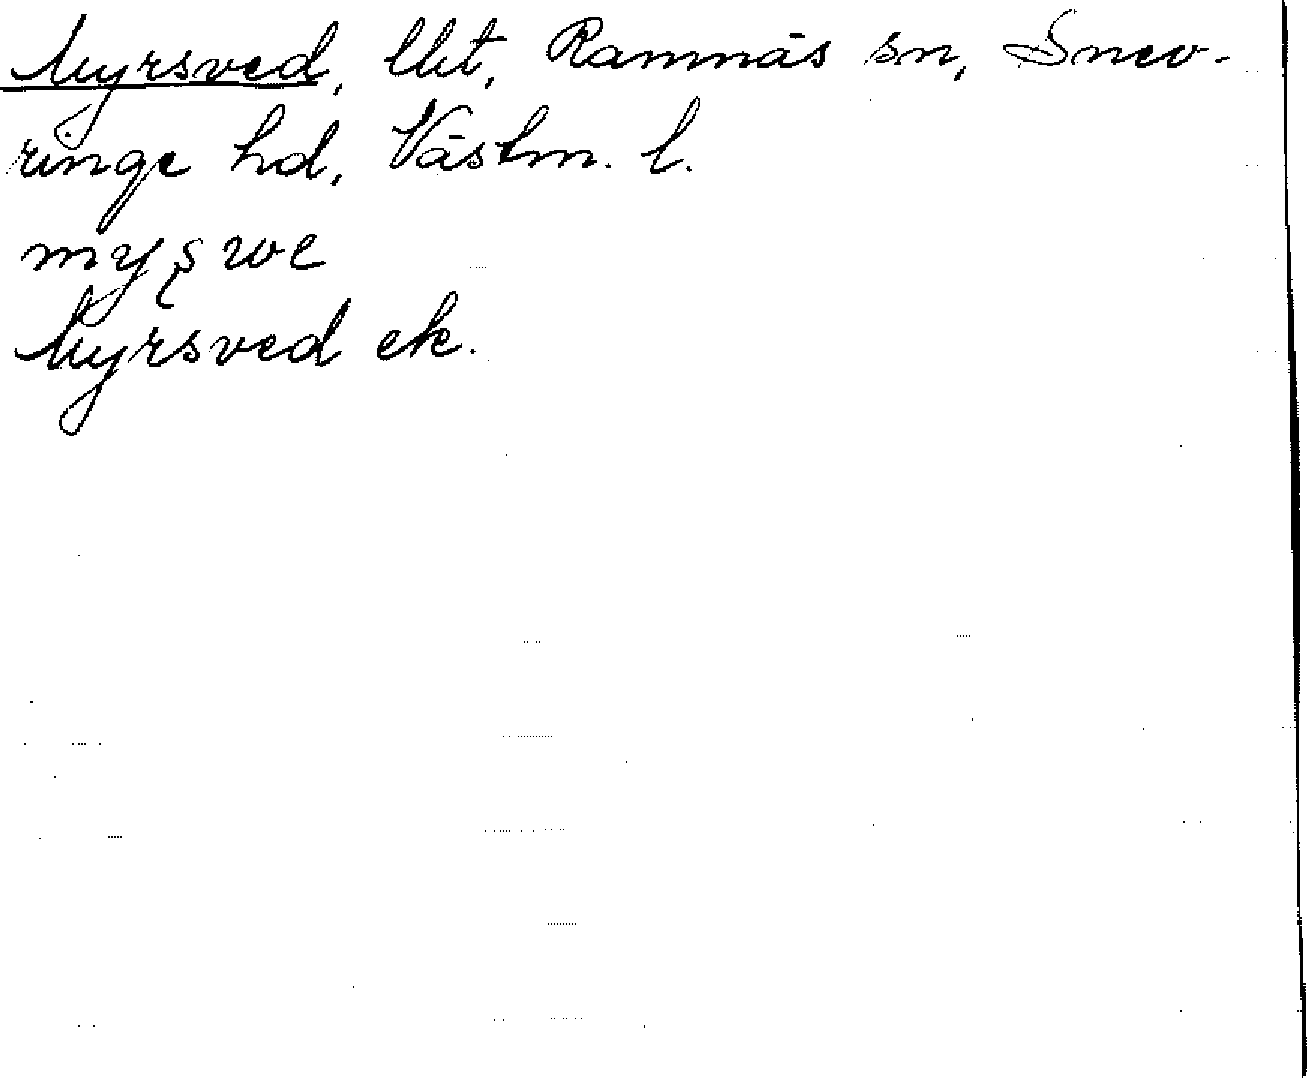 Myrsved, lht, Ramnäs sn, Snev-
ringe hd, Västm. l.
myʂve
Myrsved ek.